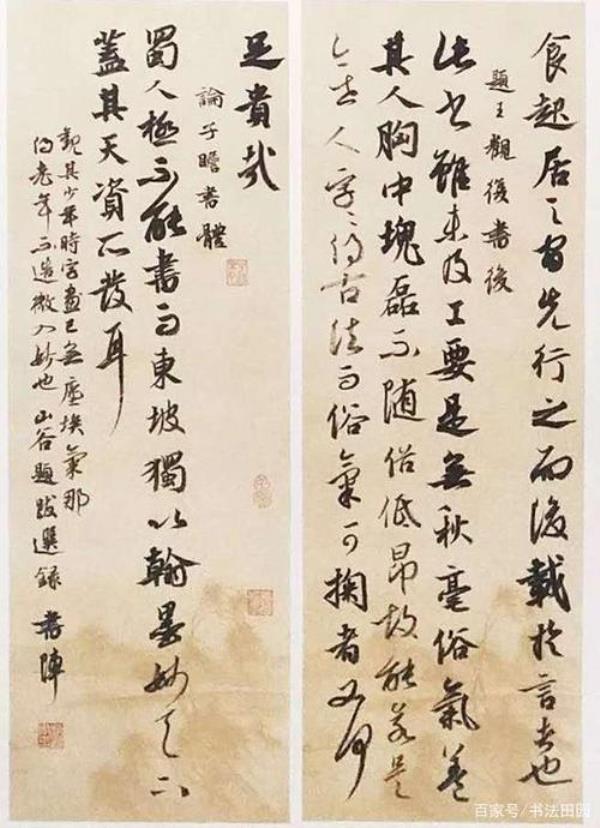 食起居之間先行之而後載於言者也
題王觀復書後
此書雖未及工要是無秋毫俗氣蓋
其人胸中塊磊不隨俗低昂故能若是
今世人字字得古法而俗氣可掬者又何
足貴哉
論子瞻書體
蜀人極不能書而東坡獨以翰墨妙天下
蓋其天資所發耳
觀其少年時字畫已無塵埃氣那
得老年不造微入妙也 山谷題跋選録 書陣
百家号/书法田园